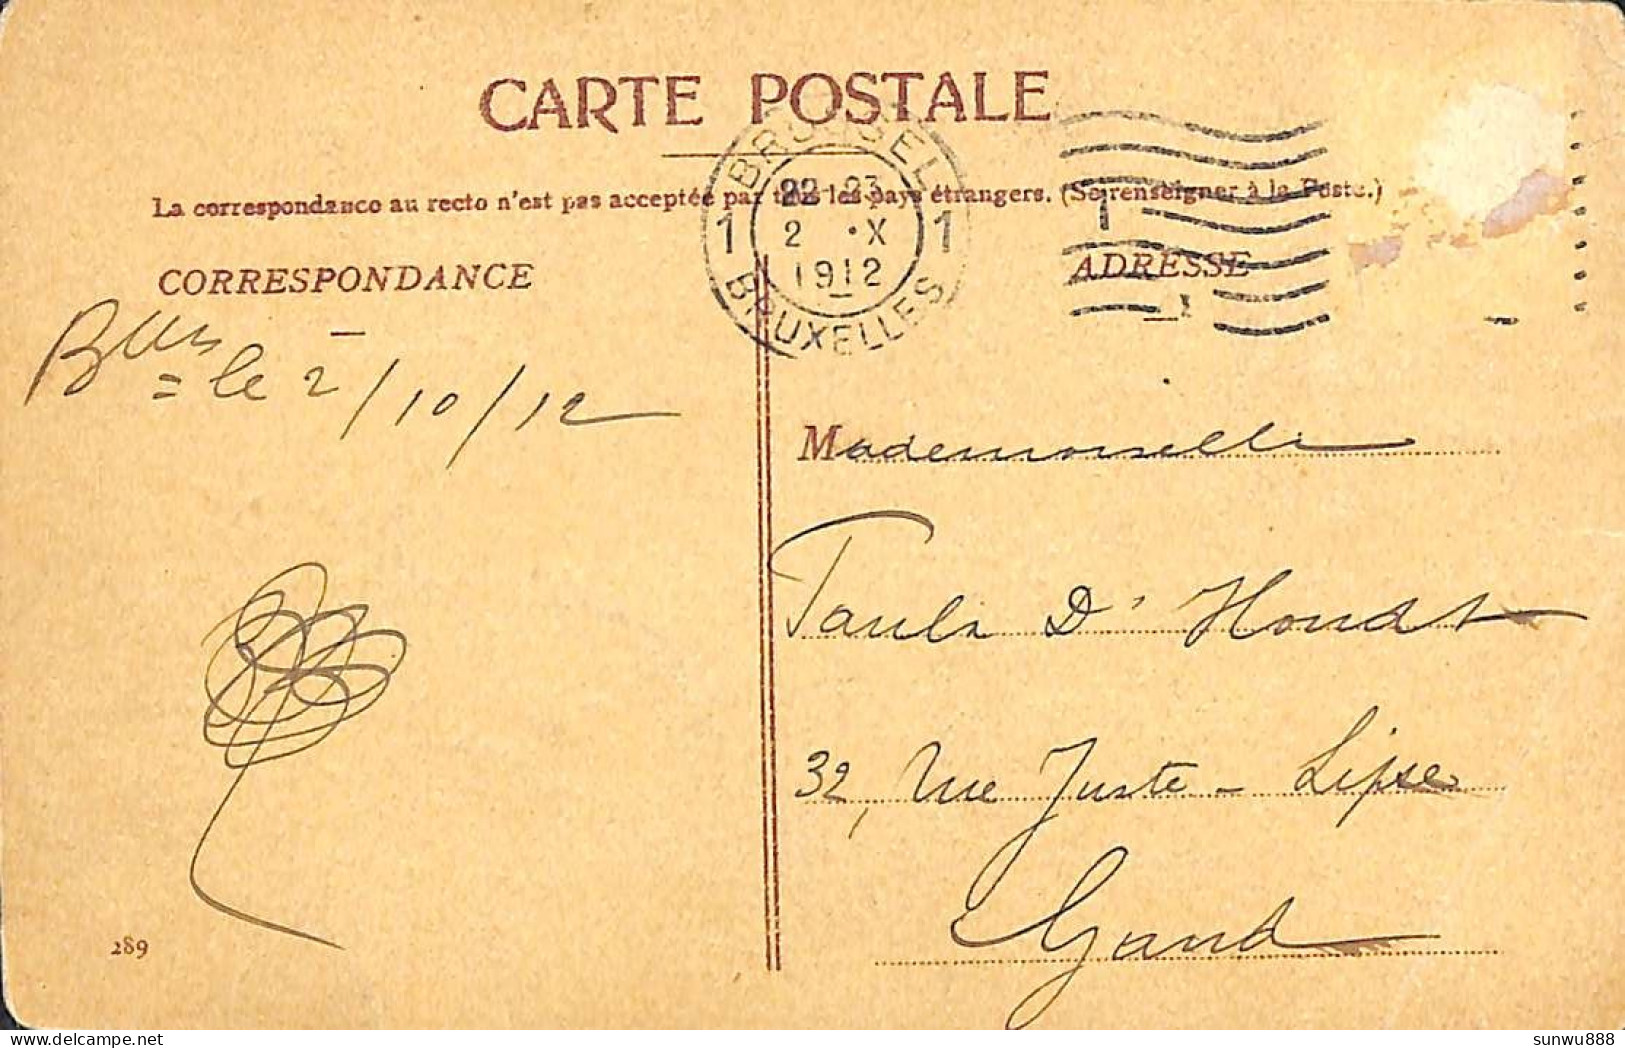 CARTE POSTALE
La correspondance au recto n'est pas acceptée par tous les pays étrangers. (Se renseigner à la Poste.)
BRUSSEL
22-23
1 2 ·X 1
1912
BRUXELLES
1
CORRESPONDANCE
ADRESSE
le 2/10/12
Mademoiselle
Paula D'Hondt
32, rue Juste-Lipse
Gand
289
delcampe.net
sunwu888